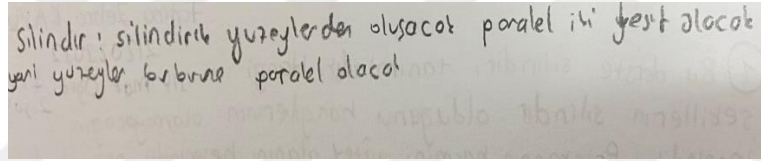 Silindir: silindirik yüzeylerden oluşacak paralel iki kesit olacak
yani yüzeyler birbirine paralel olacak